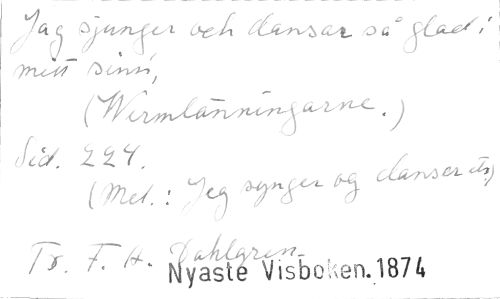 Jag sjunger och dansar så glad i
mitt sinn,
(Wermlänningarne.)
Sid. 224.
(Mel.: Jeg synger og danser etc)
Tr. F. A. Dahlgren.
Nyaste Visboken. 1874